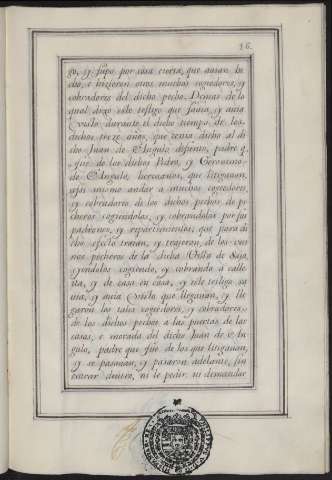 16.
go, y supo por cosa cierta, que avian he
cho, e hizieron otros muchos cogedores, y
cobradores del dicho pecho. Demas de lo
qual dixo este testigo que savia, y avia
visto durante el dicho tiempo de los
dichos treze años, que tenia dicho al di
cho Juan de Angulo difunto, padre q.
fue de los dichos Pedro, y Geronimo
de Angulo, hermanos, que litigavan,
assi mismo andar a muchos cogedores,
y cobradores de los dichos pechos de pe
cheros cogiendolos, y cobrandolos por sus
padrones, y repartimientos, que para di
cho efecto traian, y trajeron, de los vezi
nos pecheros de la dicha Villa de
yendolos cogiendo, y cobrando a calle
ita, y de casa en casa, y este testigo ve
ia, y avia visto que llegavan, y lle
garon los tales cogedores, y cobradores
de los dichos pechos a las puertas de las
casas, e morada del dicho Juan de An
gulo, padre que fue de los que litigavan,
y se pasavan, y pasaron adelante, sin
entrar dentro, ni le pedir, ni demandar